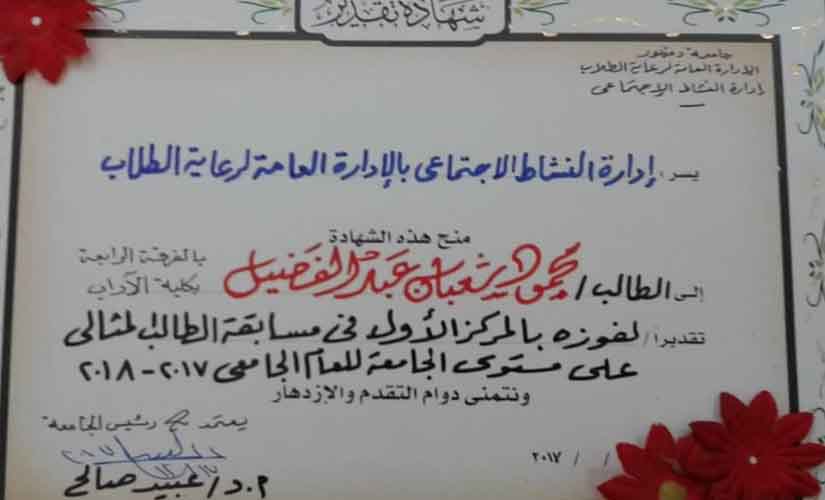 شهادة تقدير
جامعة دمنهور
الإدارة العامة لرعاية الطلاب
إدارة النشاط الاجتماعى
يسر / إدارة النشاط الاجتماعى بالإدارة العامة لرعاية الطلاب
منح هذه الشهادة
إلى الطالب / محمود شعبان عبد الفضيل بالفرقة الرابعة
بكلية الآداب
تقديراً / لفوزه بالمركز الأول فى مسابقة الطالب المثالى
على مستوى الجامعة للعام الجامعى ٢٠١٧ - ٢٠١٨
ونتمنى دوام التقدم والإزدهار
يعتمد رئيس الجامعة
/ / ٢٠١٧
أ.د/ عبيد صالح